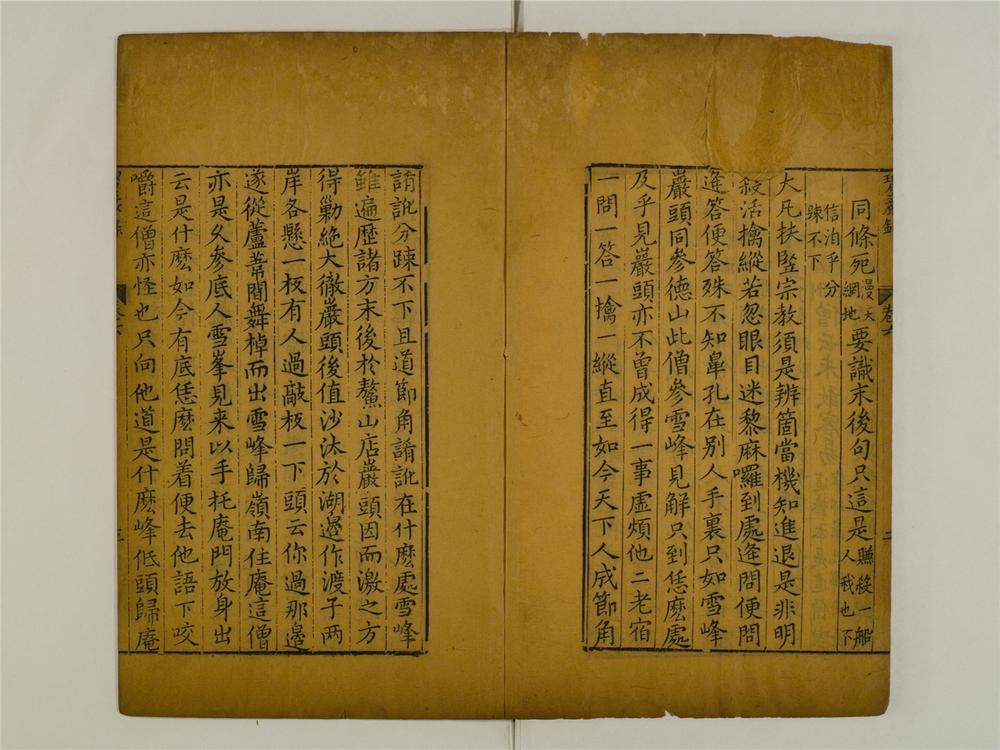 卷六
同條死漫天網地要識末後句只這是賺殺一船人我也下
信洎乎分疎不下
大凡扶竪宗教須是辨箇當機知進退是非明
殺活擒縱若忽眼目迷黎麻囉到處逢問便問
逢答便答殊不知鼻孔在別人手裏只如雪峰
巖頭同參德山此僧參雪峰見解只到恁麽處
及乎見巖頭亦不曾成得一事虛煩他二老宿
一問一答一擒一縱直至如今天下人成節角
誵訛分疎不下且道節角誵訛在什麽處雪峰
雖遍歷諸方末後於鰲山店巖頭因而激之方
得勦絕大徹巖頭後值沙汰於湖邊作渡子两
岸各懸一板有人過敲板一下頭云你過那邊
遂從蘆葦間舞棹而出雪峰歸嶺南住庵這僧
亦是久參底人雪峯見来以手托庵門放身出
云是什麽如今有底恁麽問着便去他語下咬
嚼這僧亦怪也只向他道是什麽峰低頭歸庵